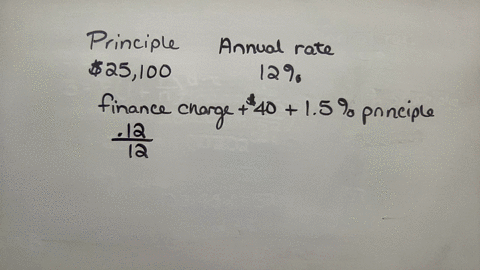 Principle Annual rate
$25,100 12%
finance charge + $40 + 1.5% principle
.12
12